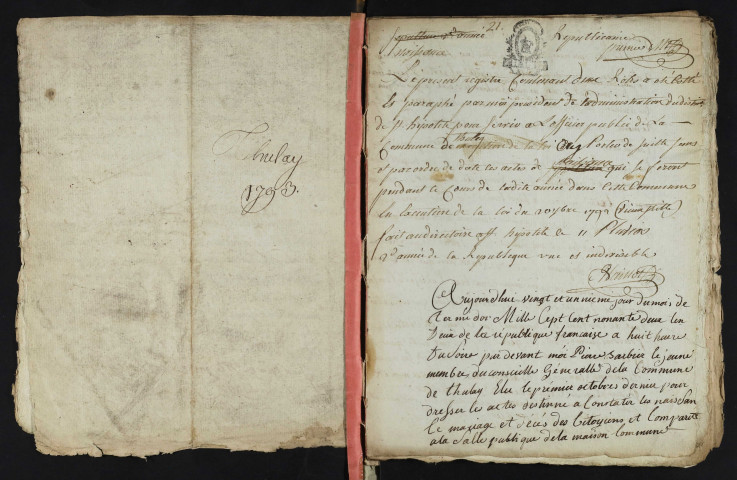 Thulay
1793.
21.
Republicaine
Le present registre Contenant dix Roles a eté Cotté
et paraphé par moi president de l'administration du district
de st hypolite pour servir a l'officier public de La
Commune de thulay de suite jours
et par ordre de date les actes de qui se feront
pendant le Cours de ladite année dans cette Commune
En Execution de la loi du 20 7bre 1792
fait au directoire a st hypolite ce 11
2e année de la Republique une et indivisible
Aujourd'hue vingt et unieme jour du mois de
Termidor Mille Sept Cent nonante deux len
Deux de la république francaise a huit heure
Du soire par devant moi Piere Sarbier le jeune
membre du conseille Généralle de la Commune
de thulay Elu le premier octobre dernier pour
dresser les actes destinné a Constater les naissan
Ce mariage et décés des Citoyens et Comparut
a la Salle publique de la maison Commune